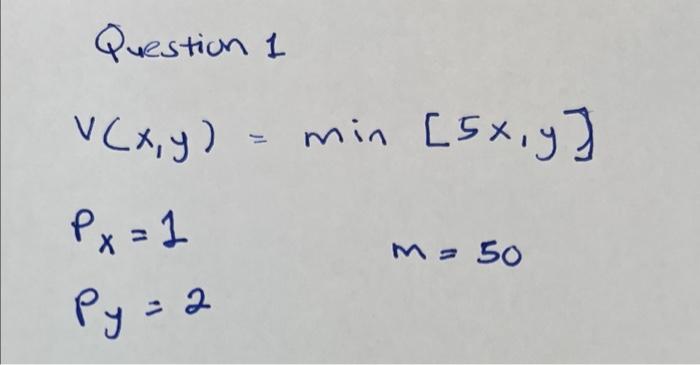 Question 1
V(x,y) = min [5x,y]
Px = 1
m = 50
Py = 2